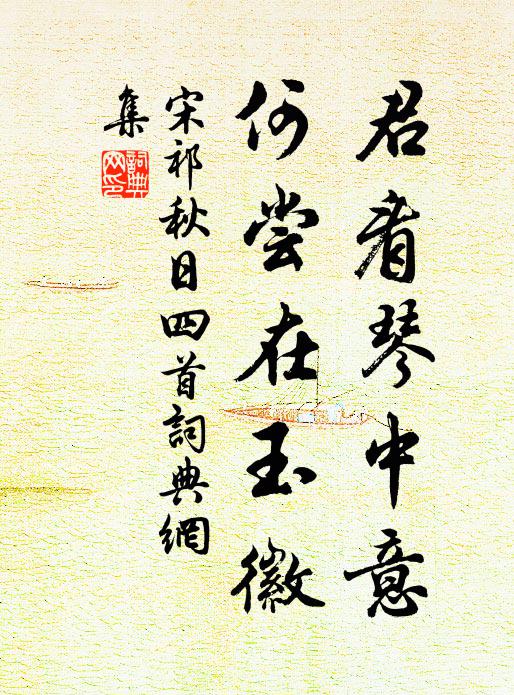 君看琴中意
何尝在玉徽
宋祁秋日四首詞典網
集
詞典
网印